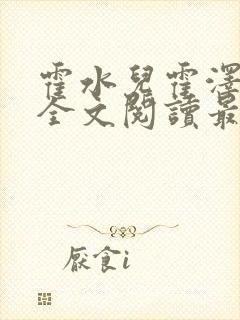 霍水兒霍澤
全文閱讀最
厭食i